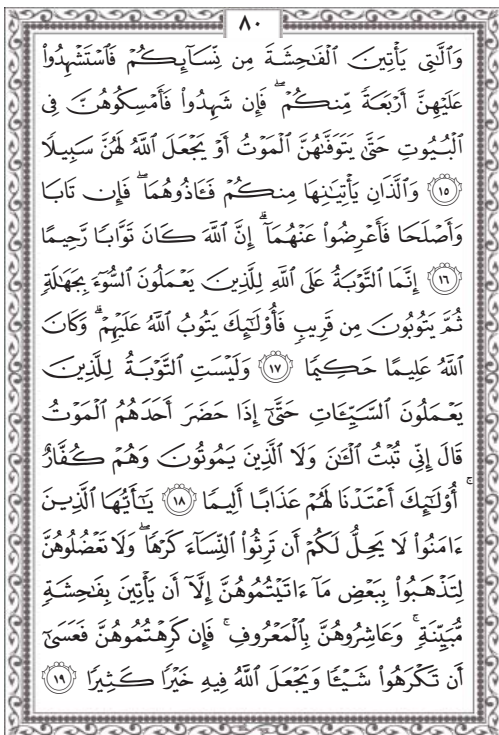 ٨٠
وَٱلَّٰتِى يَأْتِينَ ٱلْفَٰحِشَةَ مِن نِّسَآئِكُمْ فَٱسْتَشْهِدُوا۟
عَلَيْهِنَّ أَرْبَعَةً مِّنكُمْ ۖ فَإِن شَهِدُوا۟ فَأَمْسِكُوهُنَّ فِى
ٱلْبُيُوتِ حَتَّىٰ يَتَوَفَّىٰهُنَّ ٱلْمَوْتُ أَوْ يَجْعَلَ ٱللَّهُ لَهُنَّ سَبِيلًا
١٥ وَٱلَّذَانِ يَأْتِيَٰنِهَا مِنكُمْ فَـَٔاذُوهُمَا ۖ فَإِن تَابَا
وَأَصْلَحَا فَأَعْرِضُوا۟ عَنْهُمَآ ۗ إِنَّ ٱللَّهَ كَانَ تَوَّابًا رَّحِيمًا
١٦ إِنَّمَا ٱلتَّوْبَةُ عَلَى ٱللَّهِ لِلَّذِينَ يَعْمَلُونَ ٱلسُّوٓءَ بِجَهَٰلَةٍ
ثُمَّ يَتُوبُونَ مِن قَرِيبٍ فَأُو۟لَٰٓئِكَ يَتُوبُ ٱللَّهُ عَلَيْهِمْ ۗ وَكَانَ
ٱللَّهُ عَلِيمًا حَكِيمًا ١٧ وَلَيْسَتِ ٱلتَّوْبَةُ لِلَّذِينَ
يَعْمَلُونَ ٱلسَّيِّـَٔاتِ حَتَّىٰٓ إِذَا حَضَرَ أَحَدَهُمُ ٱلْمَوْتُ
قَالَ إِنِّى تُبْتُ ٱلْـَٰٔنَ وَلَا ٱلَّذِينَ يَمُوتُونَ وَهُمْ كُفَّارٌ
ۚ أُو۟لَٰٓئِكَ أَعْتَدْنَا لَهُمْ عَذَابًا أَلِيمًا ١٨ يَٰٓأَيُّهَا ٱلَّذِينَ
ءَامَنُوا۟ لَا يَحِلُّ لَكُمْ أَن تَرِثُوا۟ ٱلنِّسَآءَ كَرْهًا ۖ وَلَا تَعْضُلُوهُنَّ
لِتَذْهَبُوا۟ بِبَعْضِ مَآ ءَاتَيْتُمُوهُنَّ إِلَّآ أَن يَأْتِينَ بِفَٰحِشَةٍ
مُّبَيِّنَةٍ ۚ وَعَاشِرُوهُنَّ بِٱلْمَعْرُوفِ ۚ فَإِن كَرِهْتُمُوهُنَّ فَعَسَىٰٓ
أَن تَكْرَهُوا۟ شَيْـًٔا وَيَجْعَلَ ٱللَّهُ فِيهِ خَيْرًا كَثِيرًا ١٩